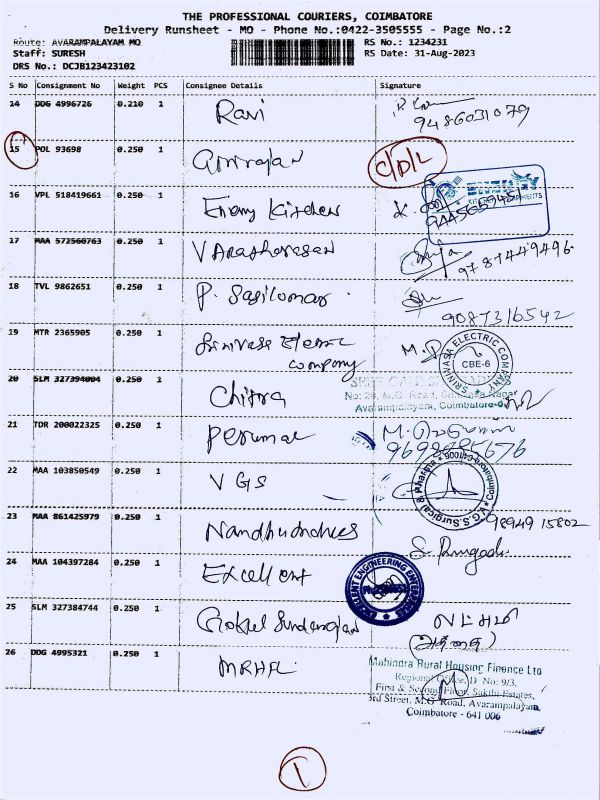 THE PROFESSIONAL COURIERS, COIMBATORE
Delivery Runsheet - MO - Phone No.:0422-3505555 - Page No.:2
Route: AVARAMPALAYAM MO RS No.: 1234231
Staff: SURESH RS Date: 31-Aug-2023
DRS No.: DCJB123423102
S No Consignment No Weight PCS Consignee Details Signature
14 DDG 4996726 0.210 1 Ravi
9486031079
15 POL 93698 0.250 1 C/D/L
16 VPL 518419661 0.250 1 Enery Kitchen
ENERGY
17 MAA 572560763 0.250 1 VAratharasan
9787449496
18 TVL 9862651 0.250 1 P. Sasikumar
9087316542
19 MTR 2365905 0.250 1 Srinivasa
company
SRINIVASA ELECTRIC COMPANY
CBE-6
20 SLM 327394004 0.250 1 Chitra
Avarampalayam, Coimbatore-
21 TDR 200022325 0.250 1 Perumal
22 MAA 103850549 0.250 1 VGS
V.G.S. Surgical & Pharma
23 MAA 861425979 0.250 1
98949 15802
24 MAA 104397284 0.250 1 Excellent
EXCELLENT ENGINEERING ENTERPRISES
25 SLM 327384744 0.250 1 Gokul
லட்சுமி
(அத்தை)
26 DDG 4995321 0.250 1 MRHFL
Mahindra Rural Housing Finance Ltd
Regional Office, D No: 9/3,
First & Second Floor, Sakthi Estates,
3rd Street, M.G Road, Avarampalayam,
Coimbatore - 641 006
1